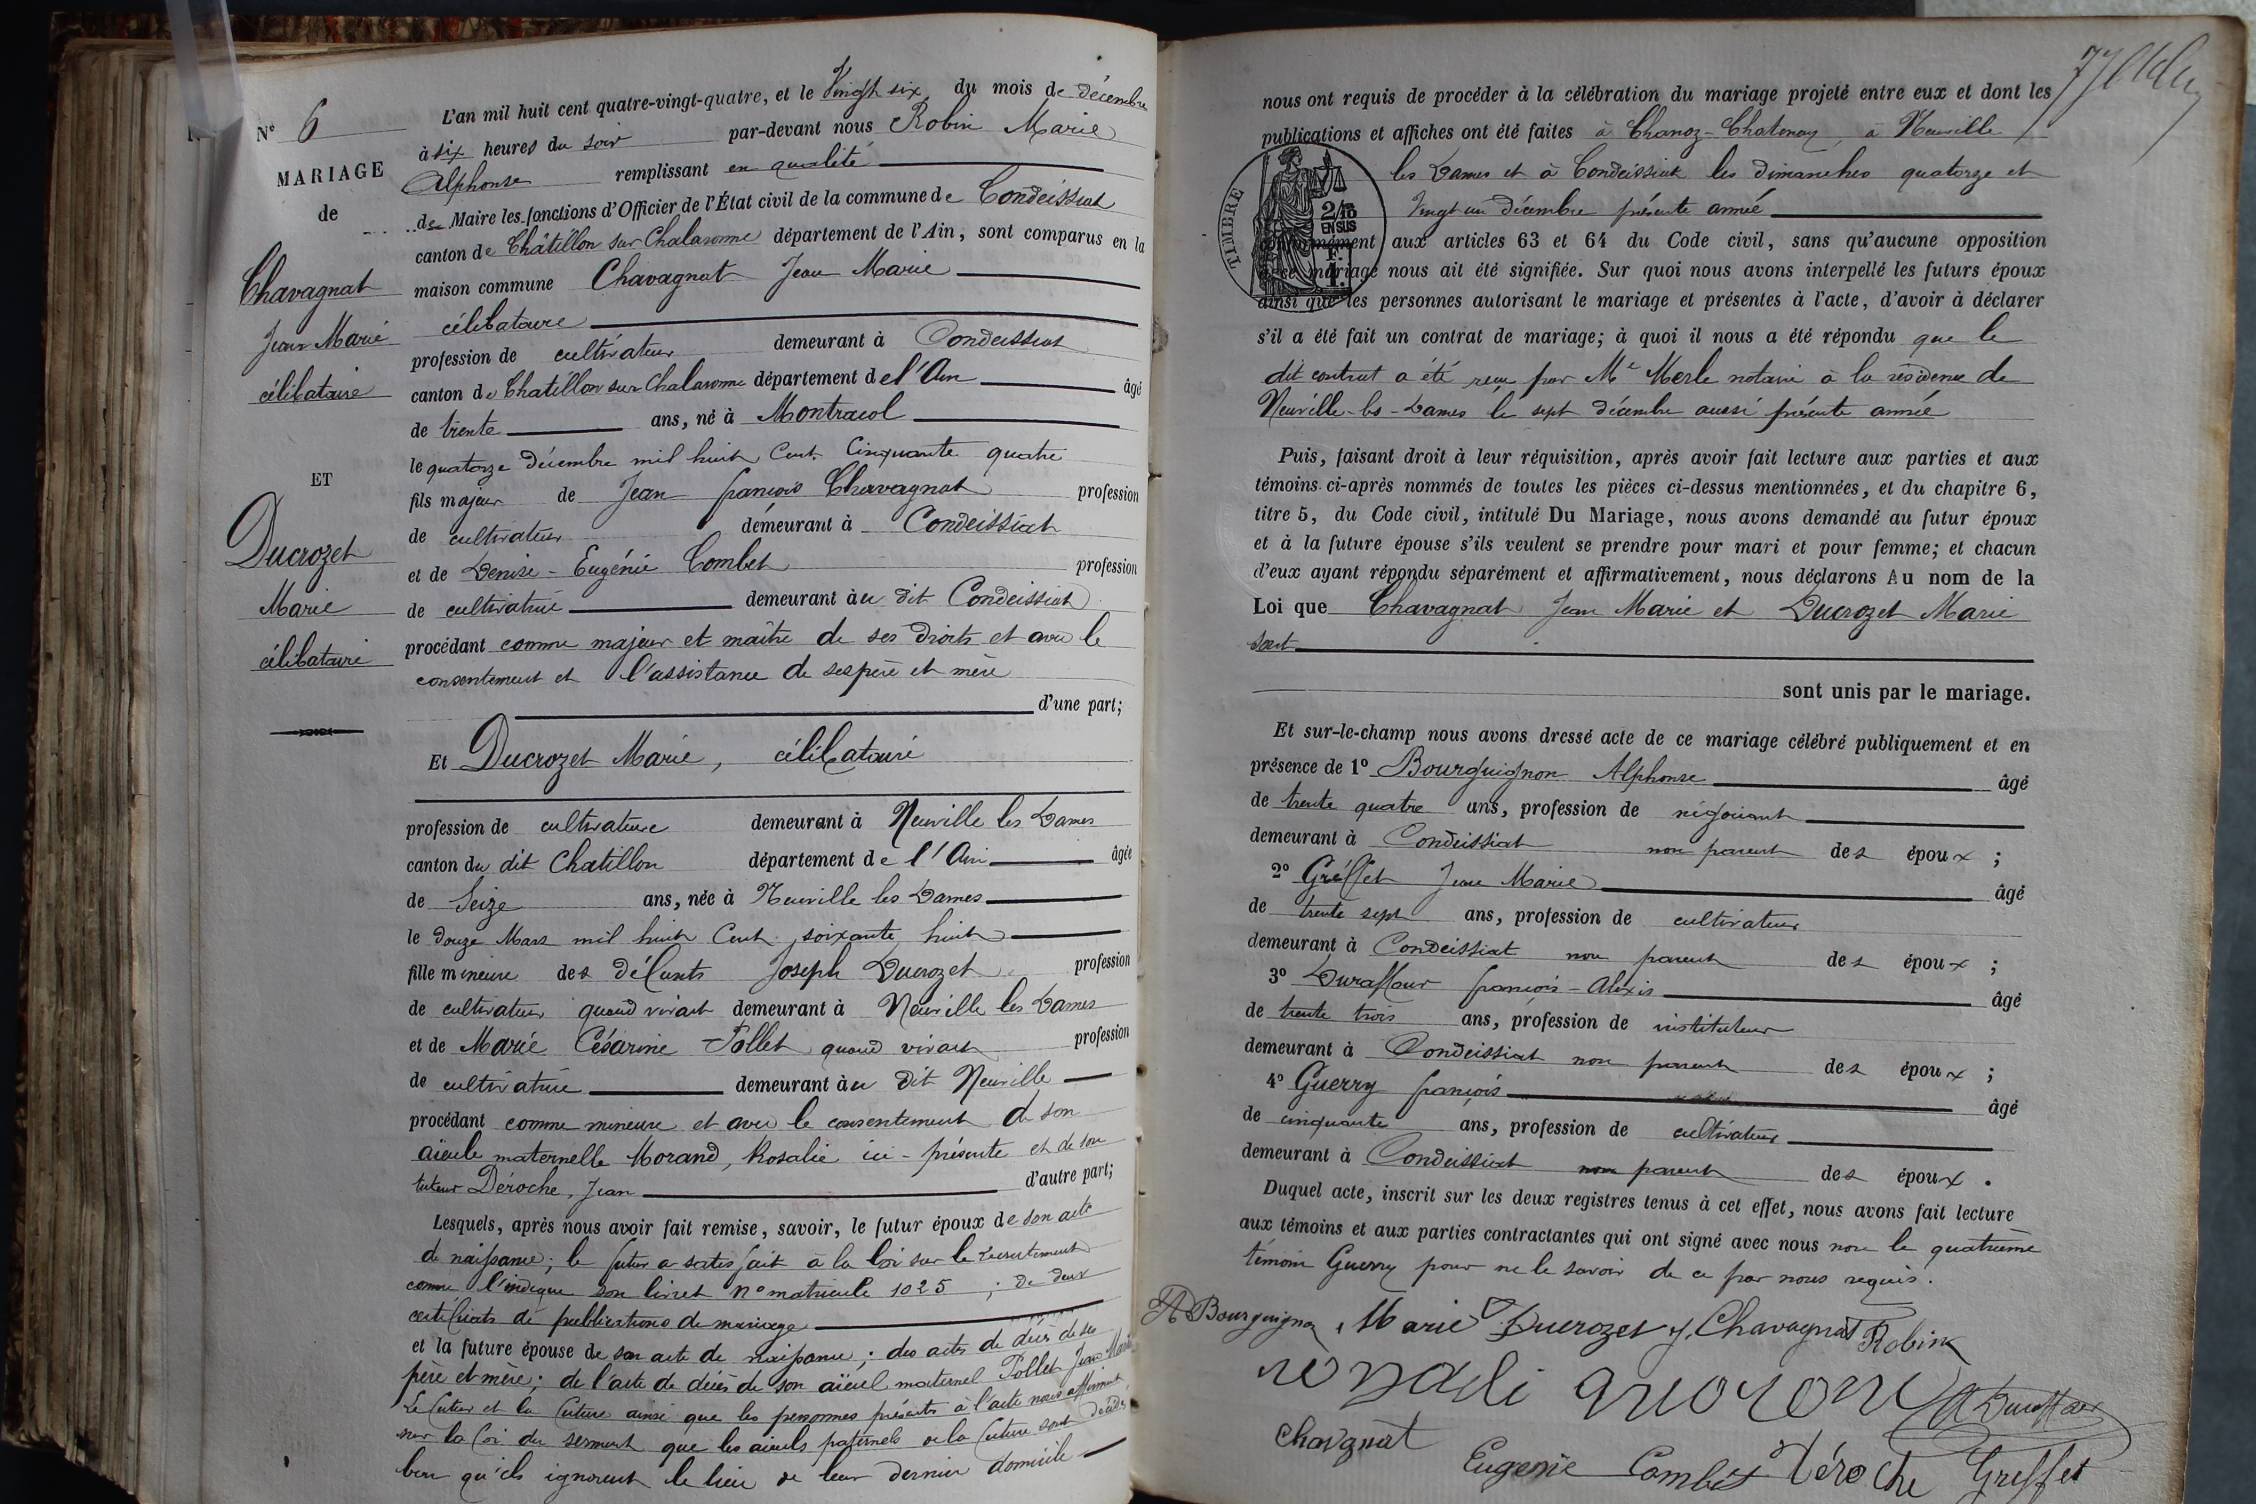 N° 6
MARIAGE
de
Chavagnat
Jean Marie
célibataire
ET
Ducrozet
Marie
célibataire
L'an mil huit cent quatre-vingt-quatre, et le Vingt six du mois de décembre
à six heures du soir par-devant nous Robin Marie
Alphonse remplissant en qualité
de Maire les fonctions d'Officier de l'État civil de la commune de Condeissiat
canton de Châtillon sur Chalaronne département de l'Ain, sont comparus en la
maison commune Chavagnat Jean Marie
célibataire
profession de cultivateur demeurant à Condeissiat
canton de Chatillon sur Chalaronne département de l'Ain âgé
de trente ans, né à Montracol
le quatorze décembre mil huit Cent Cinquante quatre
fils majeur de Jean françois Chavagnat profession
de cultivateur demeurant à Condeissiat
et de Denise-Eugénie Combet profession
de cultivatrice demeurant au dit Condeissiat
procédant comme majeur et maître de ses droits et avec le
consentement et l'assistance de ses père et mère
d'une part;
Et Ducrozet Marie, célibataire
profession de cultivatrice demeurant à Neuville les Dames
canton du dit Chatillon département de l'Ain âgée
de Seize ans, née à Neuville les Dames
le douze Mars mil huit Cent soixante huit
fille mineure des défunts Joseph Ducrozet profession
de cultivateur quand vivait demeurant à Neuville les Dames
et de Marie Césarine Pollet quand vivait profession
de cultivatrice demeurant au dit Neuville
procédant comme mineure et avec le consentement de son
aïeule maternelle Morand, Rosalie ici-présente et de son
tuteur Déroche, Jean d'autre part;
Lesquels, après nous avoir fait remise, savoir, le futur époux de son acte
de naissance; le futur a satisfait à la loi sur le recrutement
comme l'indique son livret n° matricule 1025 ; de deux
certificats de publications de mariage
et la future épouse de son acte de naissance; des actes de décès de ses
père et mère; de l'acte de décès de son aïeul maternel Pollet Jean Marie
Le futur et la future ainsi que les personnes présents à l'acte nous affirment
sur la foi du serment que les aïeuls paternels de la future sont décédés
bien qu'ils ignorent le lieu de leur dernier domicile
nous ont requis de procéder à la célébration du mariage projeté entre eux et dont les
publications et affiches ont été faites à Chanoz-Chatenay, à Neuville
les Dames et à Condeissiat les dimanches quatorze et
Vingt un décembre présente année
TIMBRE
2/10
EN SUS
F.
1.
conformément aux articles 63 et 64 du Code civil, sans qu'aucune opposition
à ce mariage nous ait été signifiée. Sur quoi nous avons interpellé les futurs époux
ainsi que les personnes autorisant le mariage et présentes à l'acte, d'avoir à déclarer
s'il a été fait un contrat de mariage; à quoi il nous a été répondu que le
dit contrat a été reçu par Me Merle notaire à la résidence de
Neuville-les-Dames le sept décembre aussi présente année
Puis, faisant droit à leur réquisition, après avoir fait lecture aux parties et aux
témoins ci-après nommés de toutes les pièces ci-dessus mentionnées, et du chapitre 6,
titre 5, du Code civil, intitulé Du Mariage, nous avons demandé au futur époux
et à la future épouse s'ils veulent se prendre pour mari et pour femme; et chacun
d'eux ayant répondu séparément et affirmativement, nous déclarons Au nom de la
Loi que Chavagnat Jean Marie et Ducrozet Marie
sont
sont unis par le mariage.
Et sur-le-champ nous avons dressé acte de ce mariage célébré publiquement et en
présence de 1° Bourguignon Alphonse âgé
de trente quatre ans, profession de négociant
demeurant à Condeissiat non parent des époux ;
2° Gréffet Jean Marie âgé
de trente sept ans, profession de cultivateur
demeurant à Condeissiat non parent des époux ;
3° Duraffour françois-Alexis âgé
de trente trois ans, profession de instituteur
demeurant à Condeissiat non parent des époux ;
4° Guerry françois âgé
de cinquante ans, profession de cultivateur
demeurant à Condeissiat non parent des époux.
Duquel acte, inscrit sur les deux registres tenus à cet effet, nous avons fait lecture
aux témoins et aux parties contractantes qui ont signé avec nous non le quatrième
témoin Guerry pour ne le savoir de ce par nous requis.
A Bourguignon Marie Ducrozet J. Chavagnat Robin
A Duraffour
Chavgnat Eugenie Combet Déroche Greffet